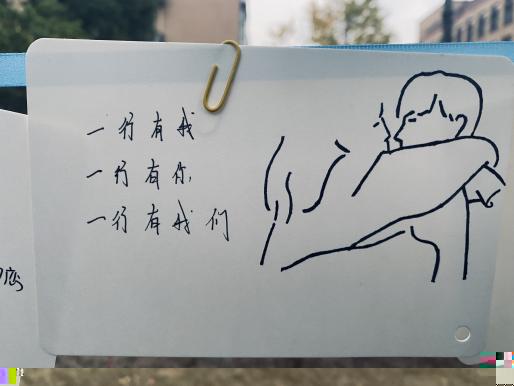 一行有我
一行有你
一行有我们